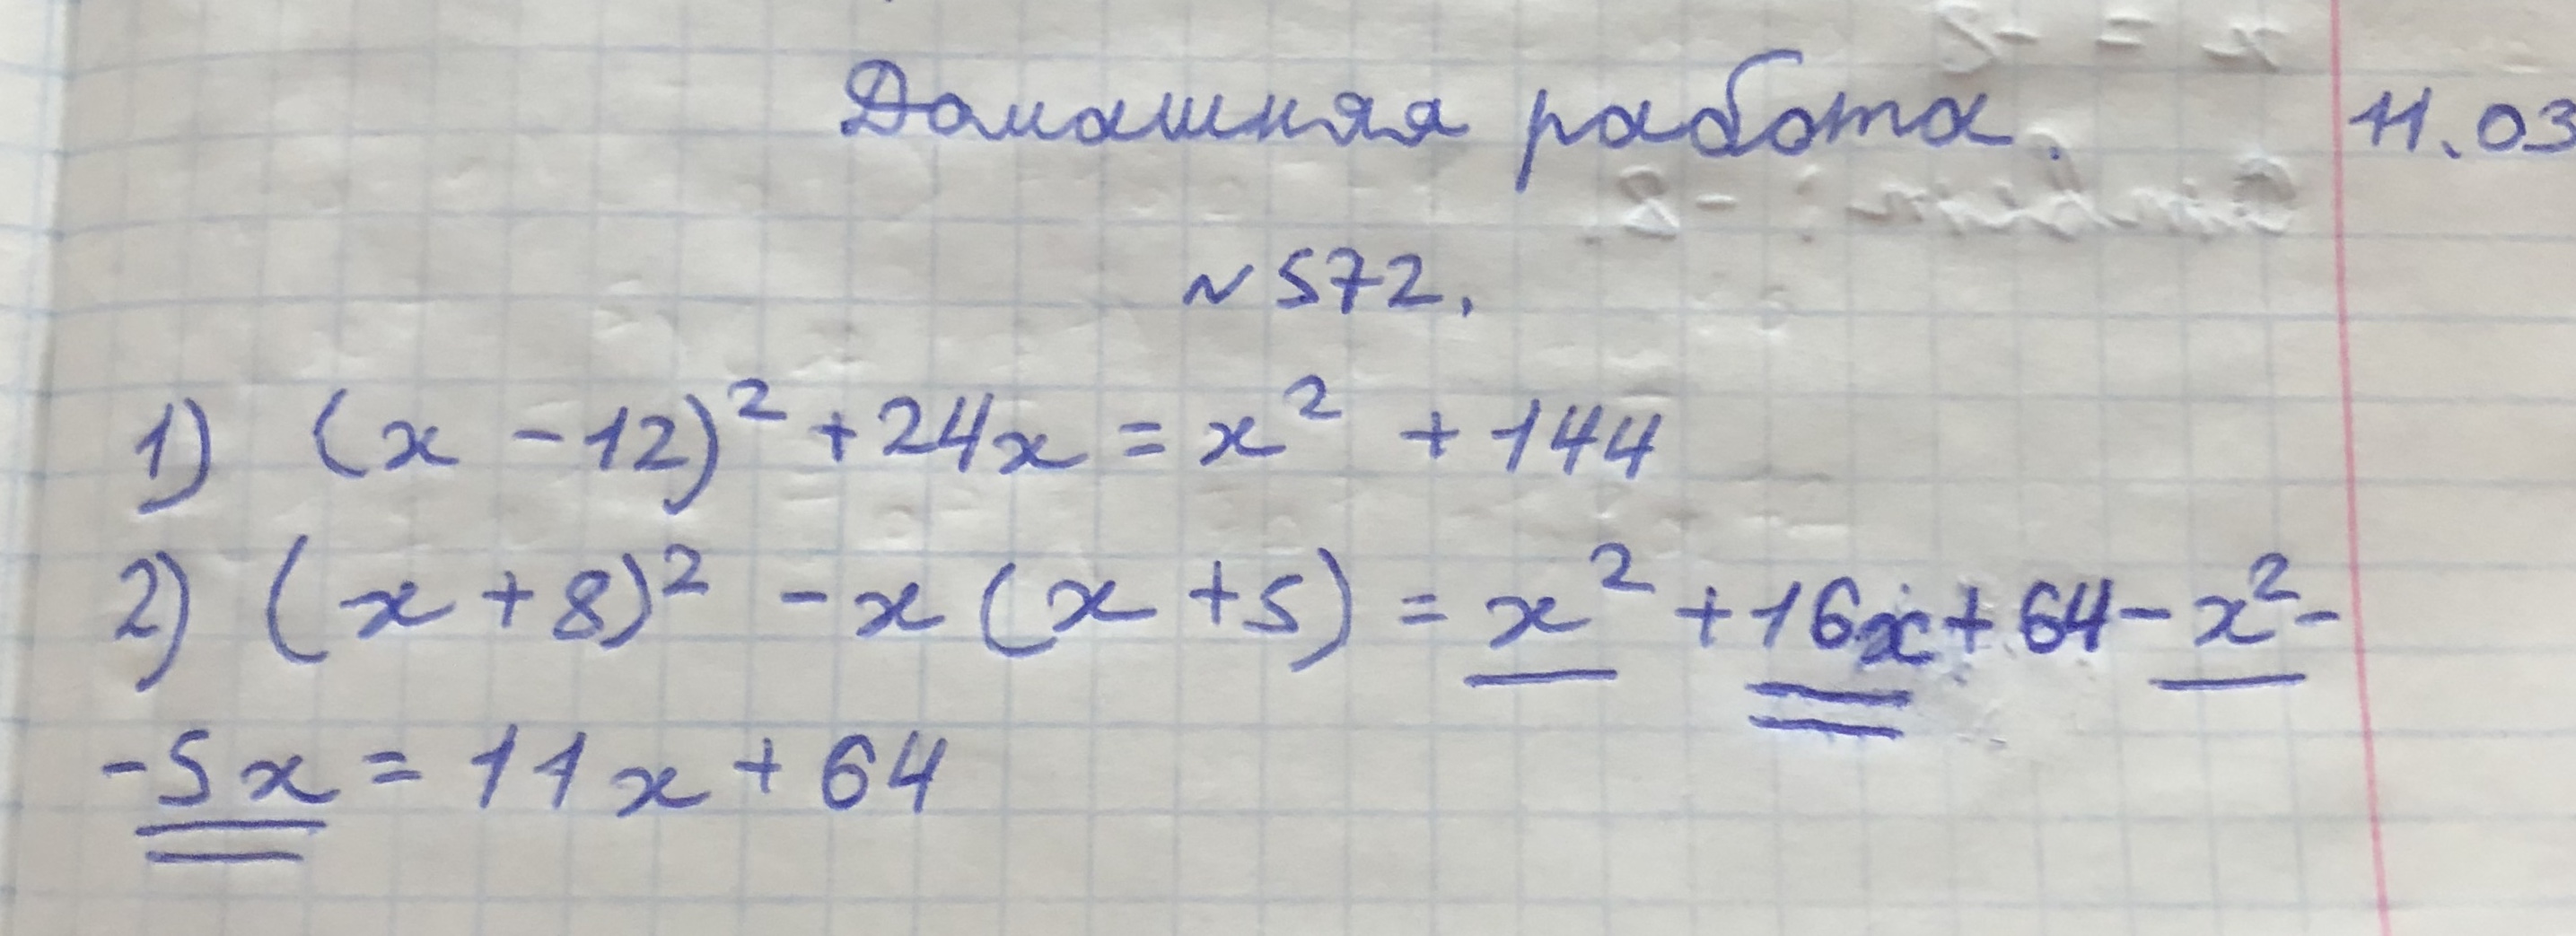 Домашняя работа. 11.03
№572.
1) (x - 12)² + 24x = x² + 144
2) (x + 8)² - x (x + 5) = x² + 16x + 64 - x² -
- 5x = 11x + 64